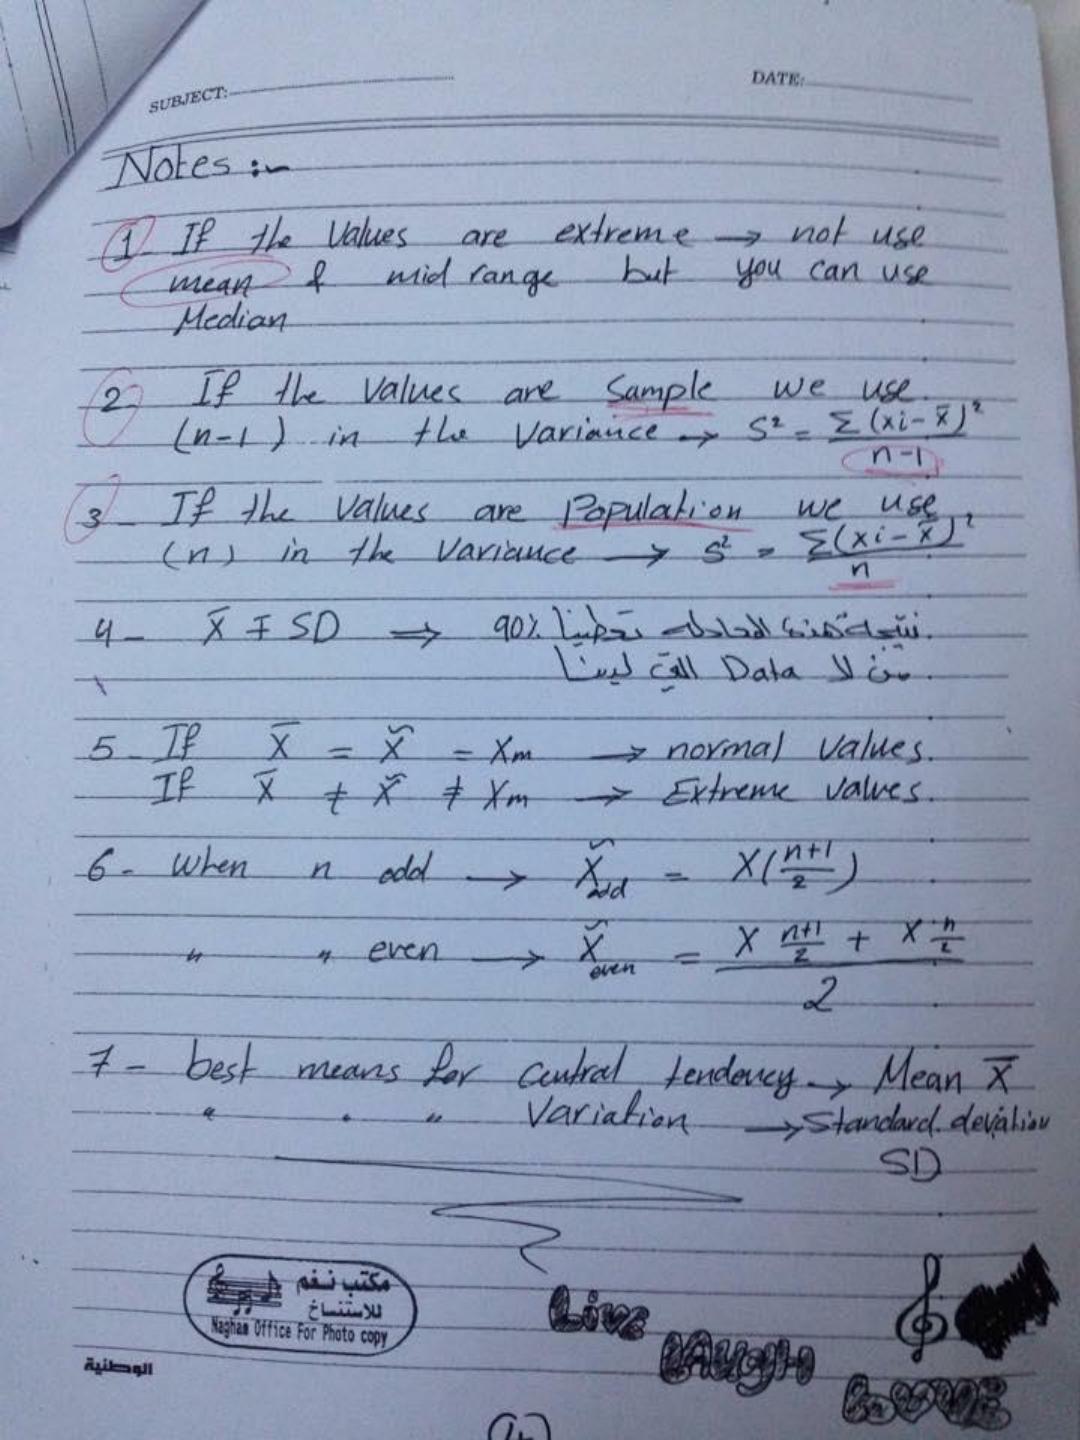 SUBJECT:
DATE:
Notes :~
1- If the Values are extreme → not use
mean & mid range but you can use
Median
2- If the Values are Sample we use
(n-1) in the Variance → S² = Σ(xi-x̄)²
n-1
3- If the Values are Population we use
(n) in the Variance → S² = Σ(xi-x̄)²
n
4- X̄ ∓ SD ⇒ 90% نتيجة هذه المعادله تعطينا
من لا Data التي لدينا
5- If X̄ = X̆ = Xm → normal values.
If X̄ ≠ X̆ ≠ Xm → Extreme values.
6- When n odd → X̆ odd = X(n+1/2)
" " even → X̆ even = X n+1/2 + X n/2
2
7- best means for Central tendency → Mean X̄
" " " Variation → Standard deviation
SD
مكتب نغم
للاستنساخ
Nagham Office For Photo copy
Live
LAUGH
LOVE
الوطنية